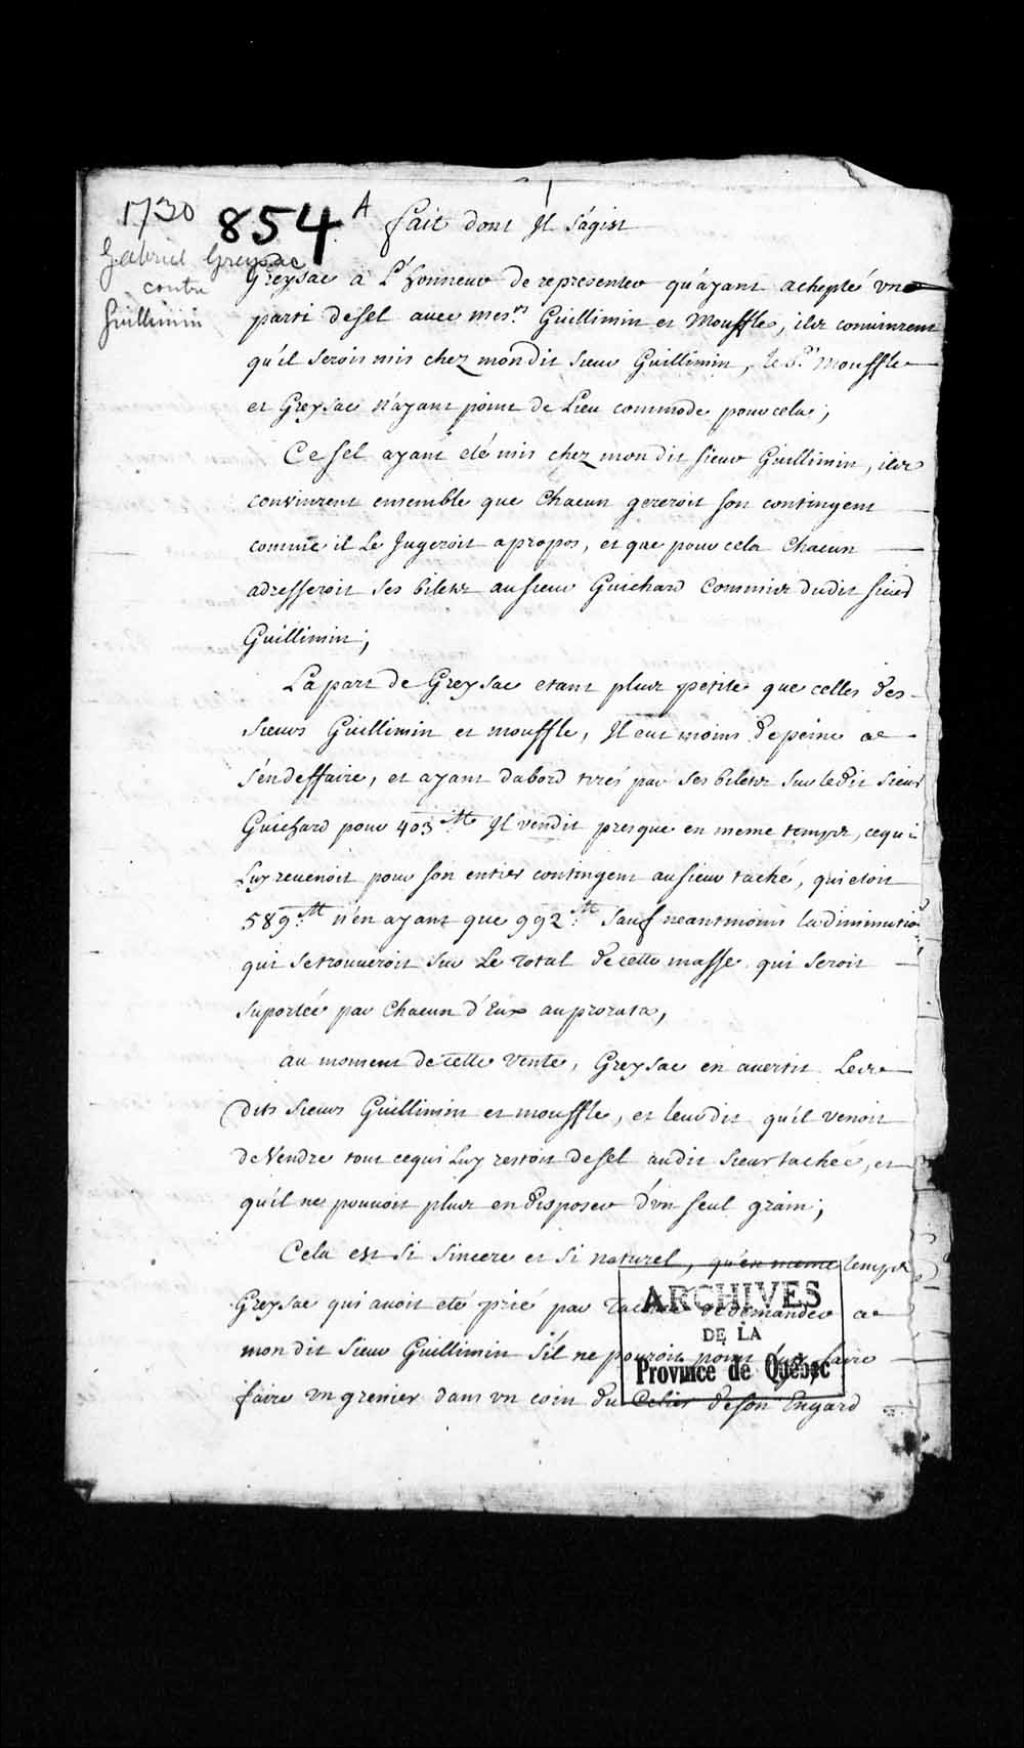 1730
854 A
Gabriel Greysac
contre
Guillimin
1
fait dont Il s'agist
Greysac a L'honneur de representer qu'ayant achepté vne
parti de sel auec mes.rs Guillimin et Mouffle, ils conuinrent
qu'il seroit mis chez mondit sieur Guillimin, le S.r Mouffle
et Greysac n'ayant point de Lieu commode pour cela;
Ce sel ayant eté mis chez mon dit sieur Guillimin, ils
convinrent ensemble que Chacun gereroit son contingent
comme il Le Jugeroit apropos, et que pour cela Chacun
adresseroit ses bilets au sieur Guichard Commis dudit sieur
Guillimin;
La part de Greysac etant plus petite que celles des
sieurs Guillimin et mouffle, Il eut moins de peine a
s'en deffaire, et ayant dabord tirés par ses bilets sur ledit sieur
Guichard pour 403 M.ts Il vendit presque en meme temps, cequi
Luy reuenoit pour son entier contingent au sieur taché, qui etoit
589 M.ts n'en ayant que 992 M.ts sauf neantmoins la diminution
qui se trouueroit sur Le total de cette masse qui seroit
suportée par Chacun d'Eux auprorata,
au moment de cette vente, Greysac en auertit Les
dits sieurs Guillimin et mouffle, et leur dit qu'il venoit
de Vendre tout cequi Luy restoit de sel audit sieur tachée, et
qu'il ne pouuoit plus en disposer d'vn seul grain;
Cela est si sincere et si naturel, qu'en meme temps
Greysac qui auoit eté prié par taché de demander a
mon dit sieur Guillimin s'il ne pouroit point faire
faire vn grenier dans vn coin du Celier de son Engard
ARCHIVES
DE LA
Province de Québec